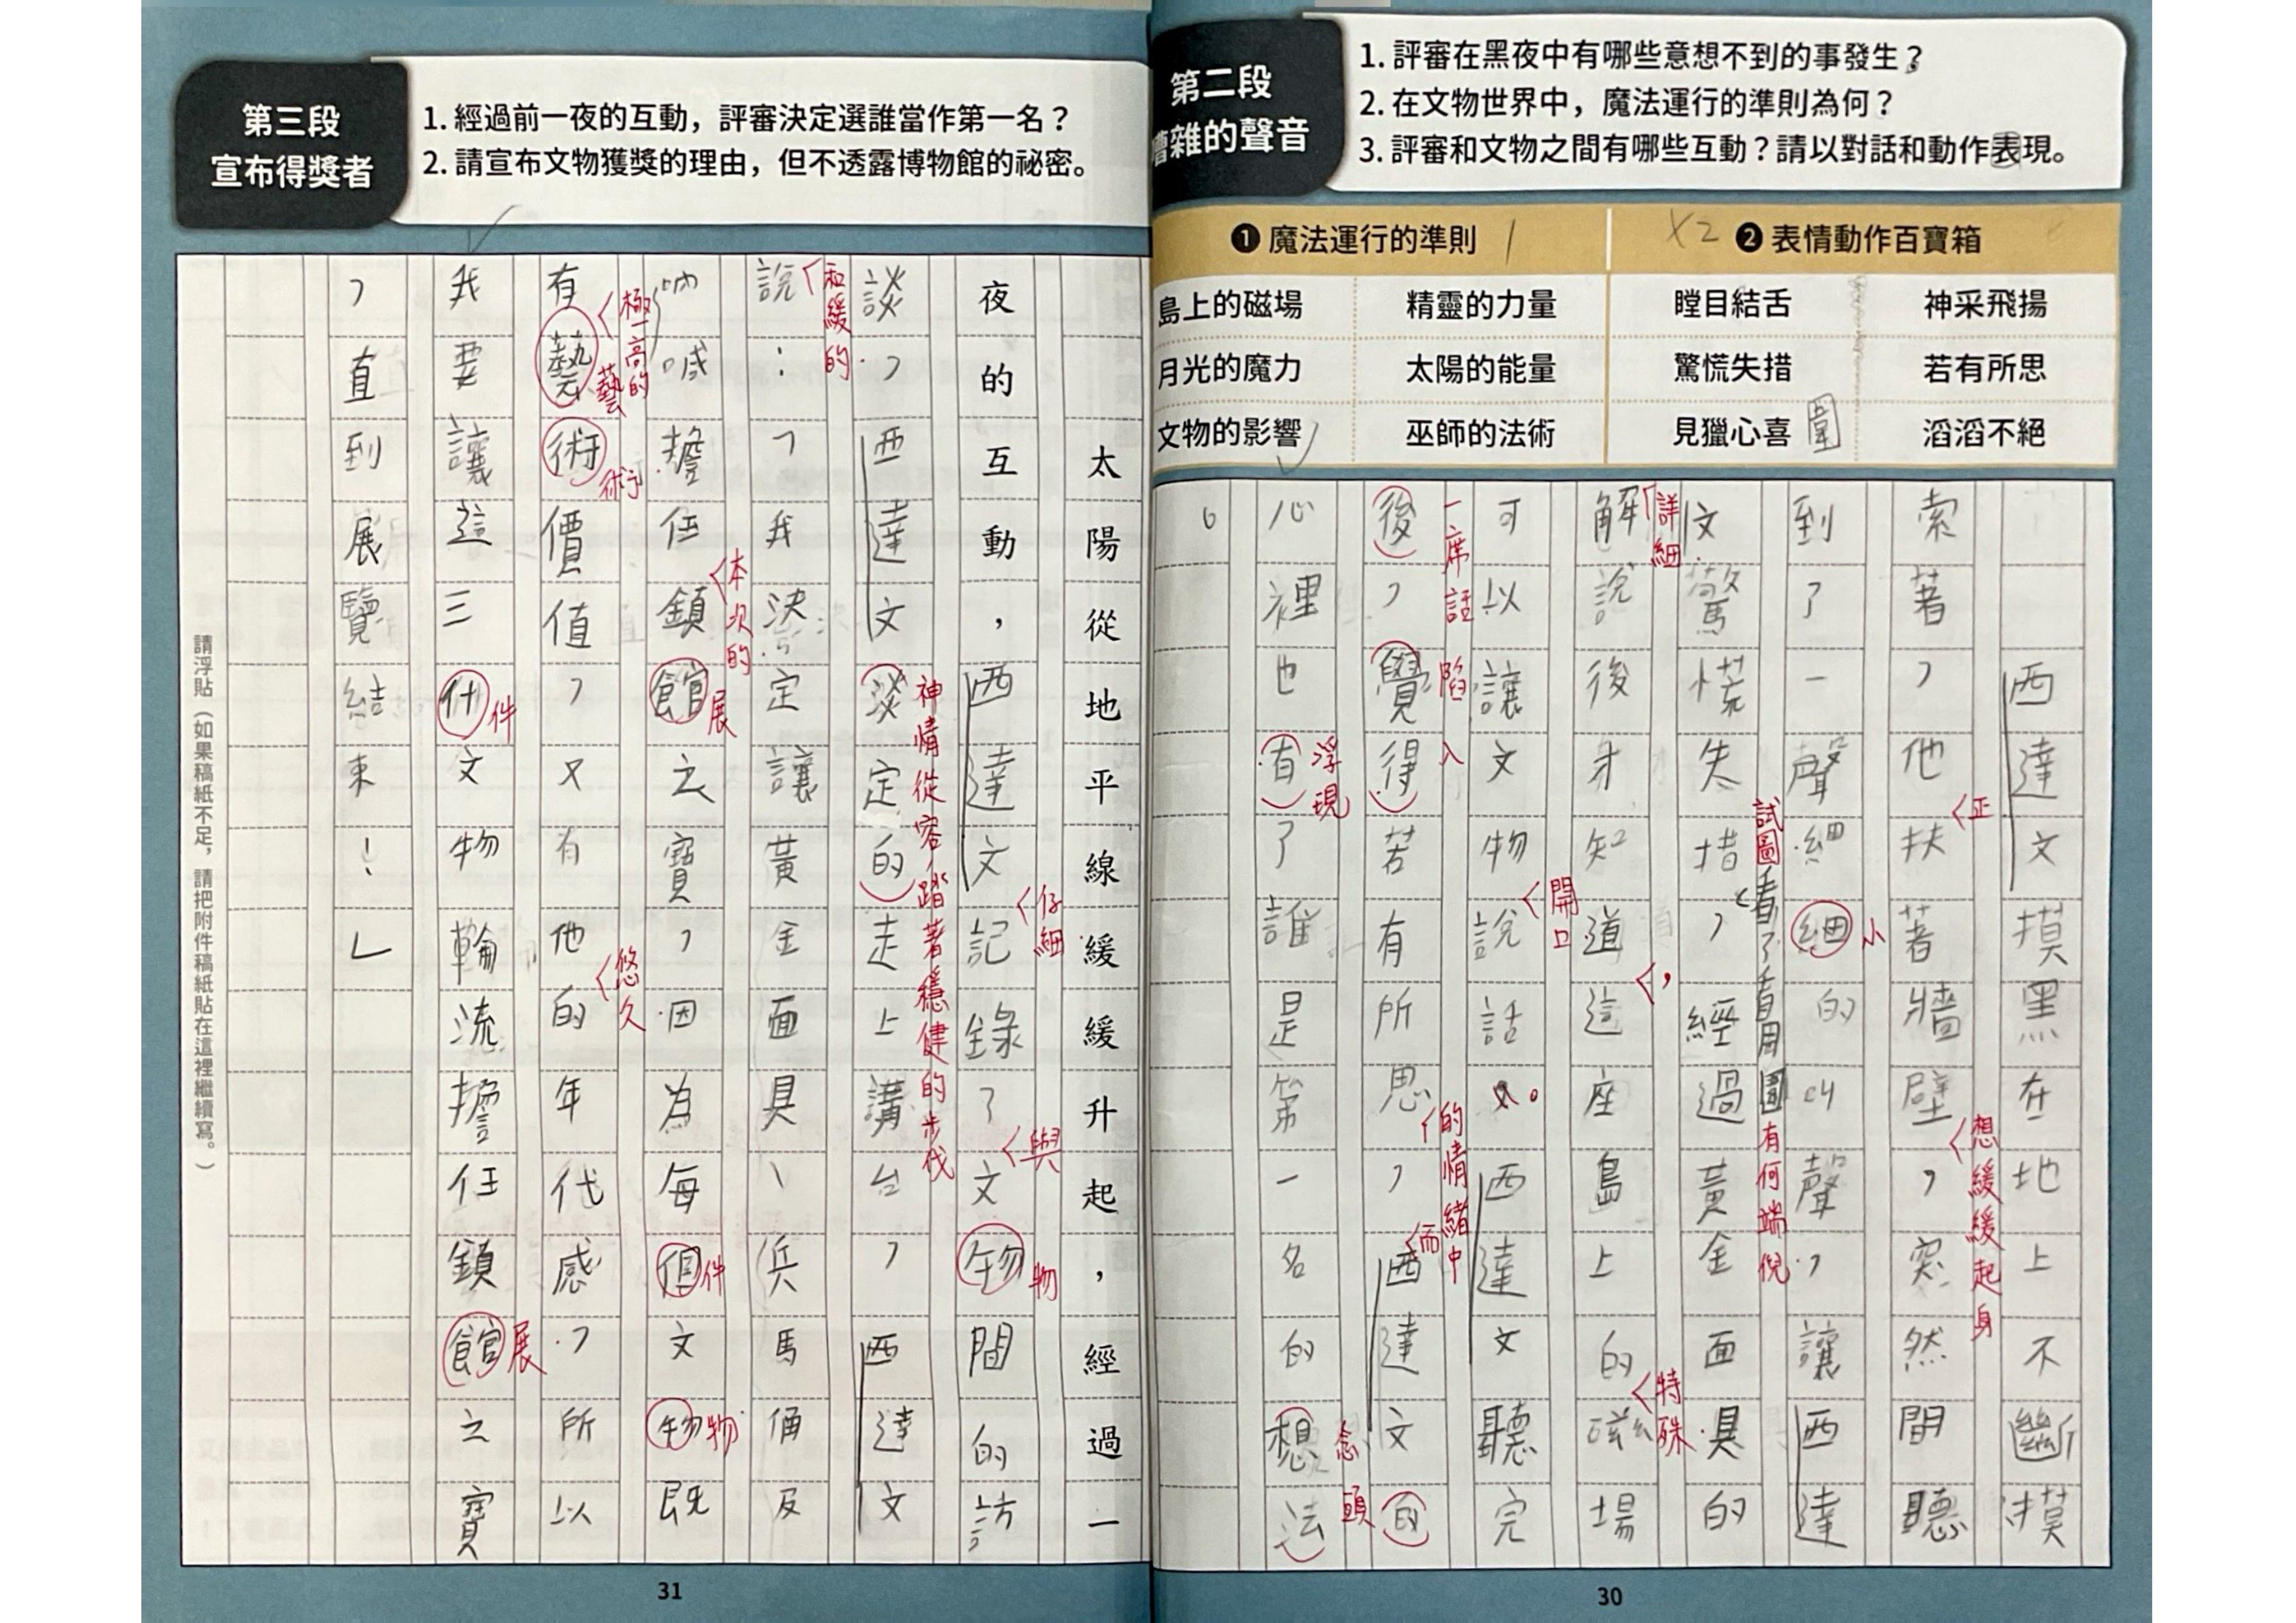 第二段
嘈雜的聲音
1. 評審在黑夜中有哪些意想不到的事發生？
2. 在文物世界中，魔法運行的準則為何？
3. 評審和文物之間有哪些互動？請以對話和動作表現。
❶ 魔法運行的準則 1
X2 ❷ 表情動作百寶箱
島上的磁場 精靈的力量 瞠目結舌 神采飛揚
月光的魔力 太陽的能量 驚慌失措 若有所思
文物的影響 巫師的法術 見獵心喜 圍 滔滔不絕
西達文摸黑在地上不斷摸
索著，他扶著牆壁，突然間聽
正
想緩緩起身
到了一聲細細的叫聲，讓西達
小
文驚慌失措，經過黃金面具的
試圖看了看周圍有何端倪
解說後才知道這座島上的磁場
詳細
，
特殊
可以讓文物說話。西達文聽完
開口
後，覺得若有所思，西達文的
一席話
陷入
的情緒中
而
心裡也有了誰是第一名的想法
浮現
念頭
。
30
第三段
宣布得獎者
1. 經過前一夜的互動，評審決定選誰當作第一名？
2. 請宣布文物獲獎的理由，但不透露博物館的祕密。
太陽從地平線緩緩升起，經過一
夜的互動，西達文記錄了文物間的訪
仔細
與
物
談，西達文淡定的走上講台，西達文
神情從容踏著穩健的步伐
說：「我決定讓黃金面具、兵馬俑及
和緩的
吶喊擔任鎮館之寶，因為每個文物既
本次的
展
件
物
有藝術價值，又有他的年代感，所以
極高的
藝術
悠久
我要讓這三什文物輪流擔任鎮館之寶
件
展
，直到展覽結束！」
請浮貼（如果稿紙不足，請把附件稿紙貼在這裡繼續寫。）
31